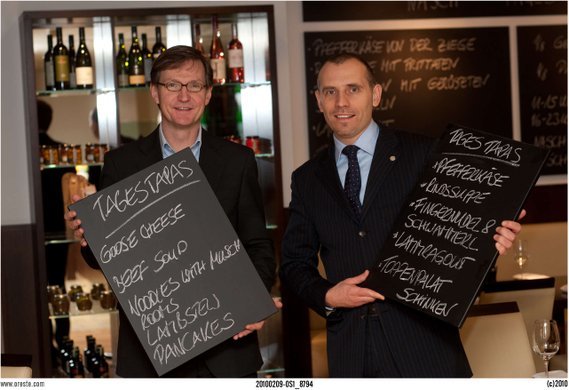 PFEFFERKÄSE VON DER ZIEGE
MIT
MIT
TAGESTAPAS
GOOSE CHEESE
BEEF SOUP
NOODLES WITH MUSH
ROOMS
LAMBSTEW
PANCAKES
TAGES TAPAS
*PFEFFERKÄSE
*RINDSSUPPE
*FINGERNUDEL &
SCHWAMMERL
*LAMMRAGOUT
TOPFENPALAT
SCHINKEN
www.oreste.com
20100209-OS1_8794
(c)2010